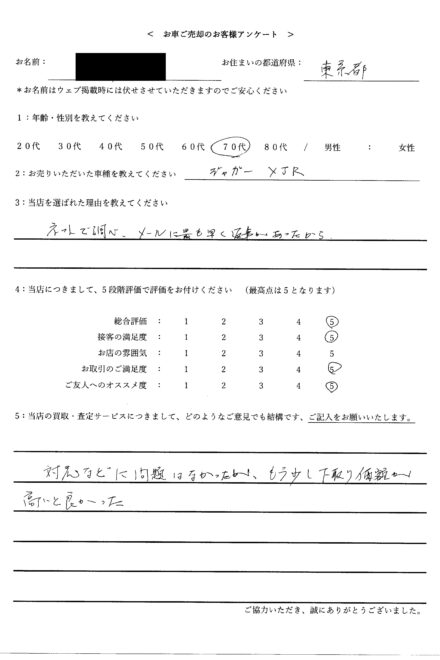 ＜ お車ご売却のお客様アンケート ＞
お名前： お住まいの都道府県： 東京都
＊お名前はウェブ掲載時には伏せさせていただきますのでご安心ください
１：年齢・性別を教えてください
２０代 ３０代 ４０代 ５０代 ６０代 ７０代 ８０代 / 男性 ： 女性
２：お売りいただいた車種を教えてください ジャガー XJR
３：当店を選ばれた理由を教えてください
ネットで調べ、メールに最も早く返事があったから
４：当店につきまして、５段階評価で評価をお付けください （最高点は５となります）
総合評価 ： 1 2 3 4 5
接客の満足度 ： 1 2 3 4 5
お店の雰囲気 ： 1 2 3 4 5
お取引のご満足度 ： 1 2 3 4 5
ご友人へのオススメ度 ： 1 2 3 4 5
５：当店の買取・査定サービスにつきまして、どのようなご意見でも結構です、ご記入をお願いいたします。
対応などに問題はなかったが、もう少し下取り価額が
高いと良かった
ご協力いただき、誠にありがとうございました。